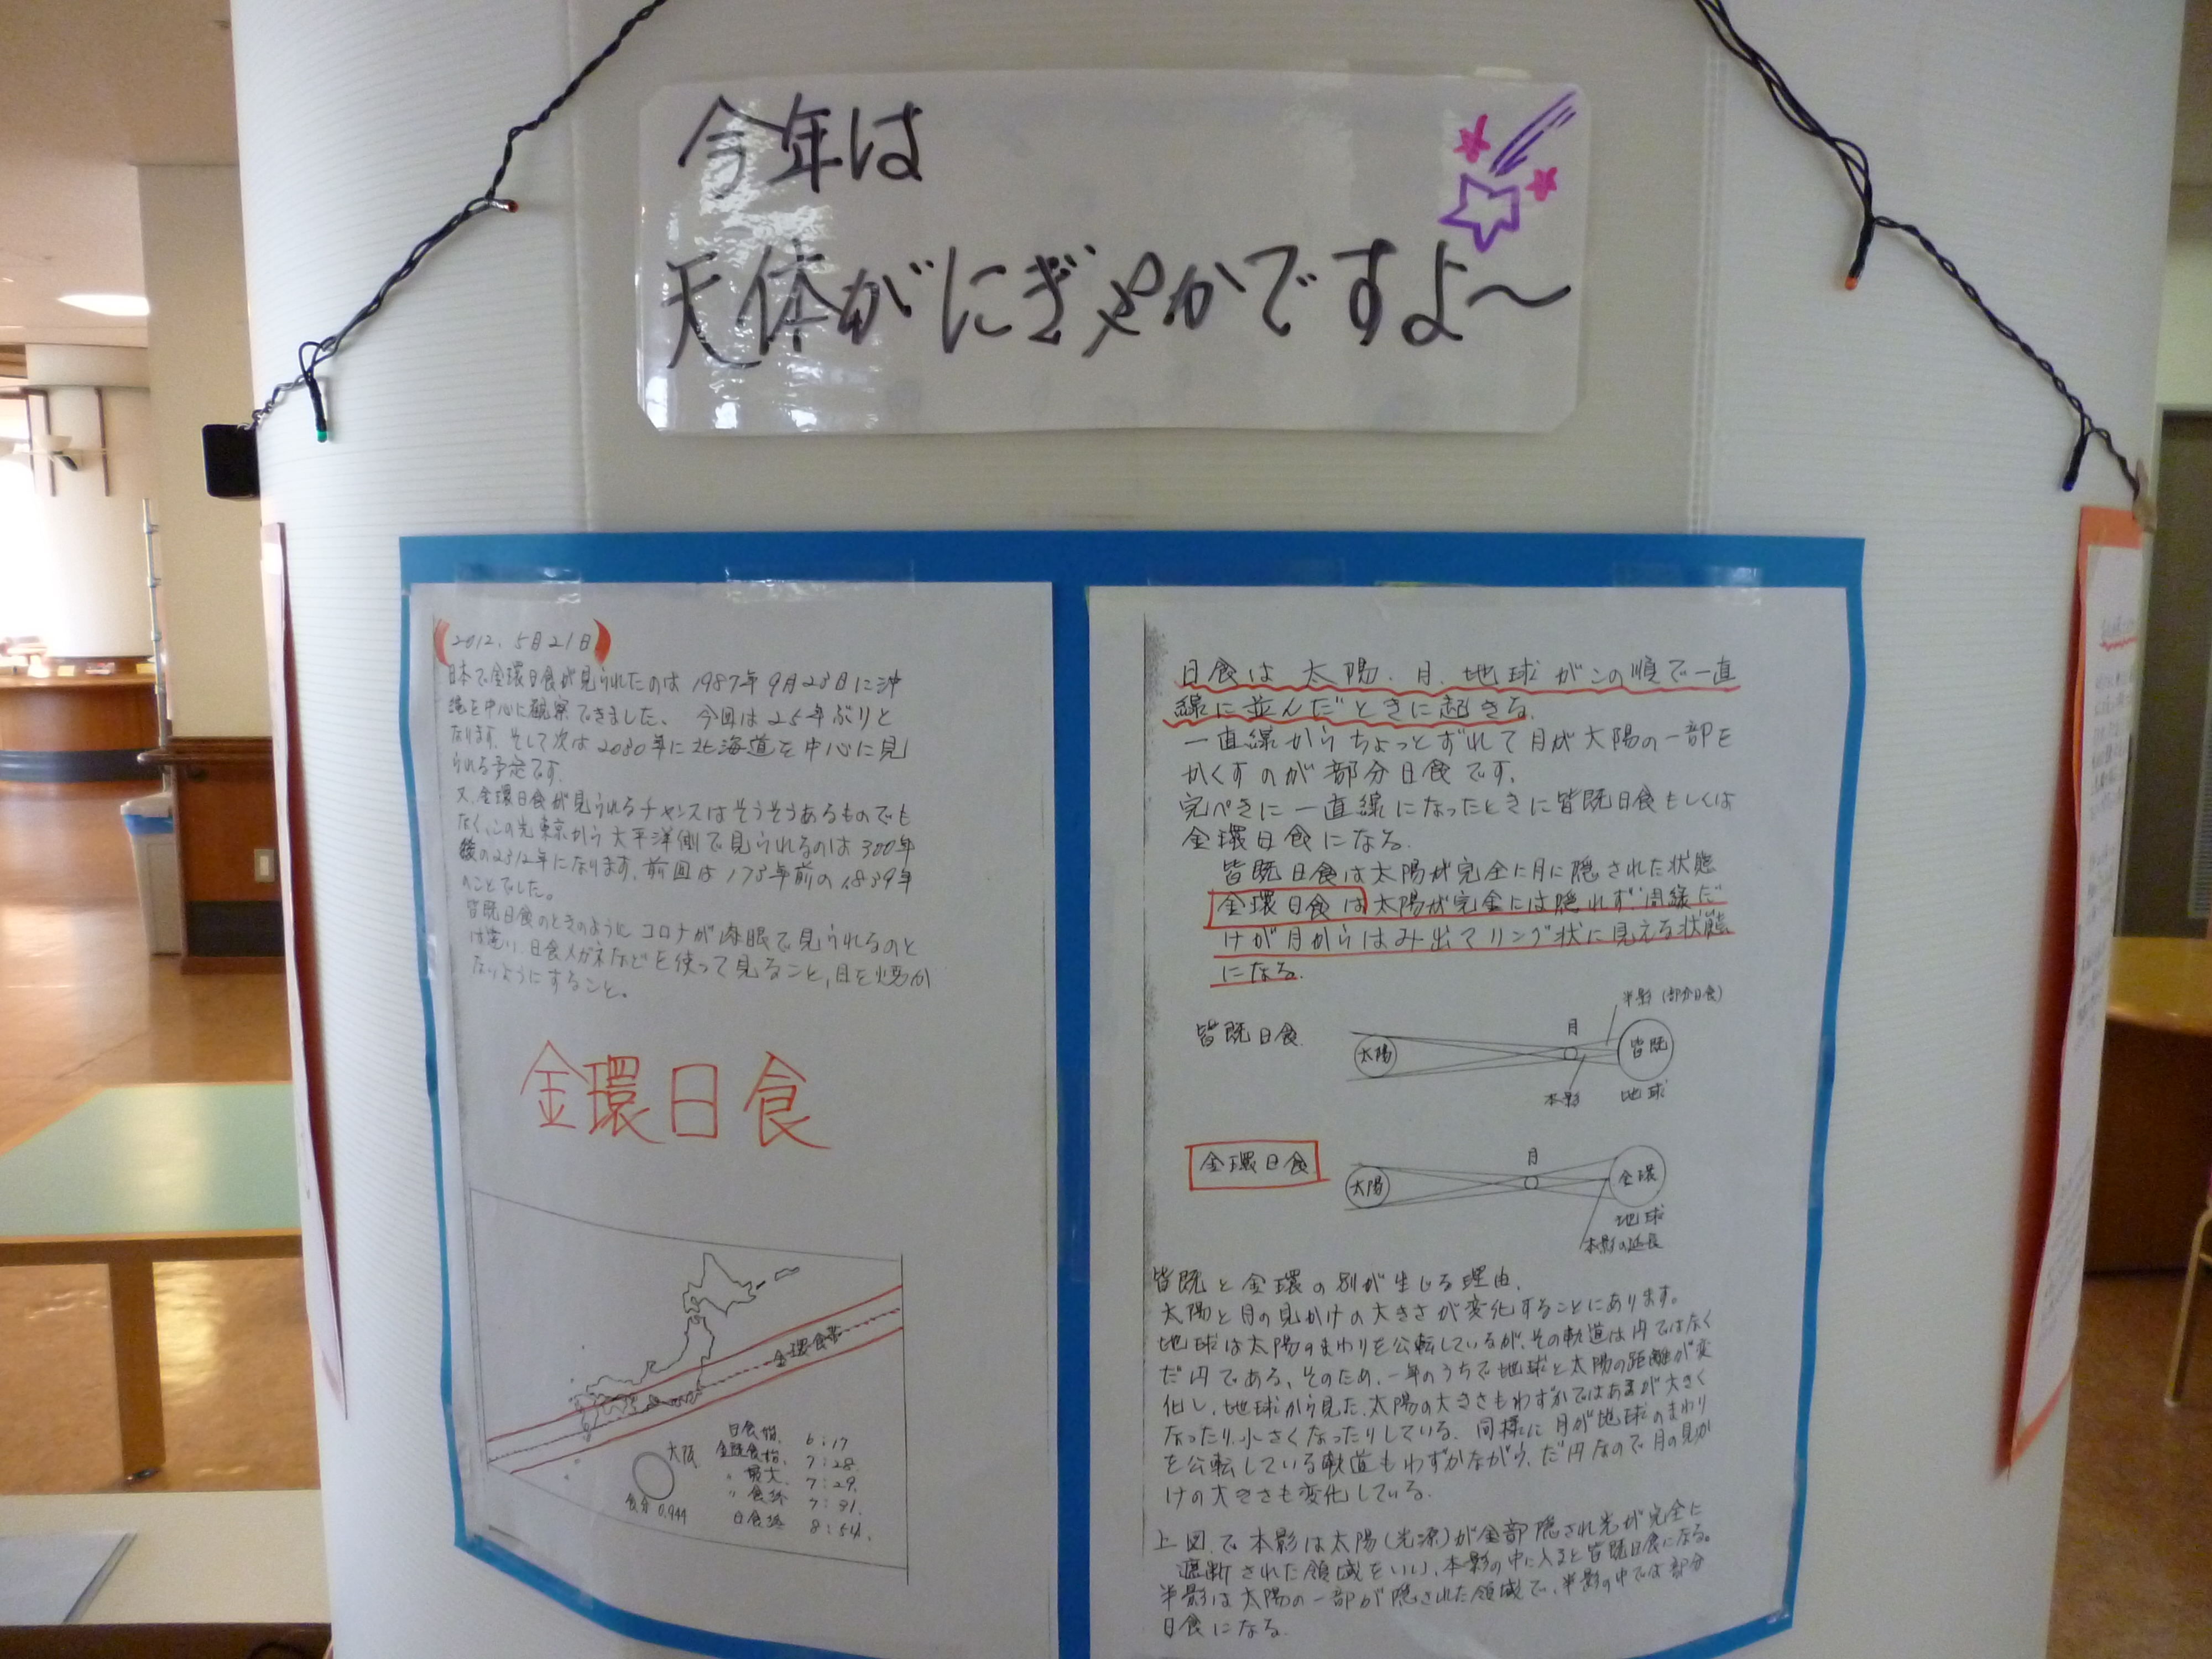 今年は
天体がにぎやかですよ〜
(2012. 5月21日)
日本で金環日食が見られたのは 1987年 9月23日に沖
縄を中心に観察できました、 今回は25年ぶりと
なります。そして次は2030年に北海道を中心に見
られる予定です。
又、金環日食が見られるチャンスはそうそうあるものでも
なく、この先東京から太平洋側で見られるのは300年
後の2312年になります。前回は173年前の1839年
のことでした。
皆既日食のときのようにコロナが肉眼で見られるのと
は違い、日食メガネなどを使って見ること、目を焼か
ないようにすること。
金環日食
金環食帯
大阪
食分 0.944
日食始 6:17
金環食始 7:28
〃 最大 7:29
〃 食終 7:31
日食終 8:54
日食は 太陽、月、地球がこの順で一直
線に並んだときに起きる。
一直線からちょっとずれて月が太陽の一部を
かくすのが部分日食です。
完ぺきに一直線になったときに皆既日食もしくは
金環日食になる。
皆既日食は太陽が完全に月に隠された状態
金環日食は太陽が完全には隠れず周縁だ
けが月からはみ出てリング状に見える状態
になる。
半影(部分日食)
皆既日食
月
太陽
皆既
本影
地球
金環日食
月
太陽
金環
地球
本影の延長
皆既と金環の別が生じる理由、
太陽と月の見かけの大きさが変化することにあります。
地球は太陽のまわりを公転しているが、その軌道は円ではなく
だ円である、そのため、一年のうちで地球と太陽の距離が変
化し、地球から見た、太陽の大きさもわずかではあるが大きく
なったり、小さくなったりしている。同様に月が地球のまわり
を公転している軌道もわずかながら、だ円なので月の見か
けの大きさも変化している。
上図で本影は太陽(光源)が全部隠され光が完全に
遮断された領域をいい、本影の中に入ると皆既日食になる。
半影は太陽の一部が隠された領域で、半影の中では部分
日食になる。